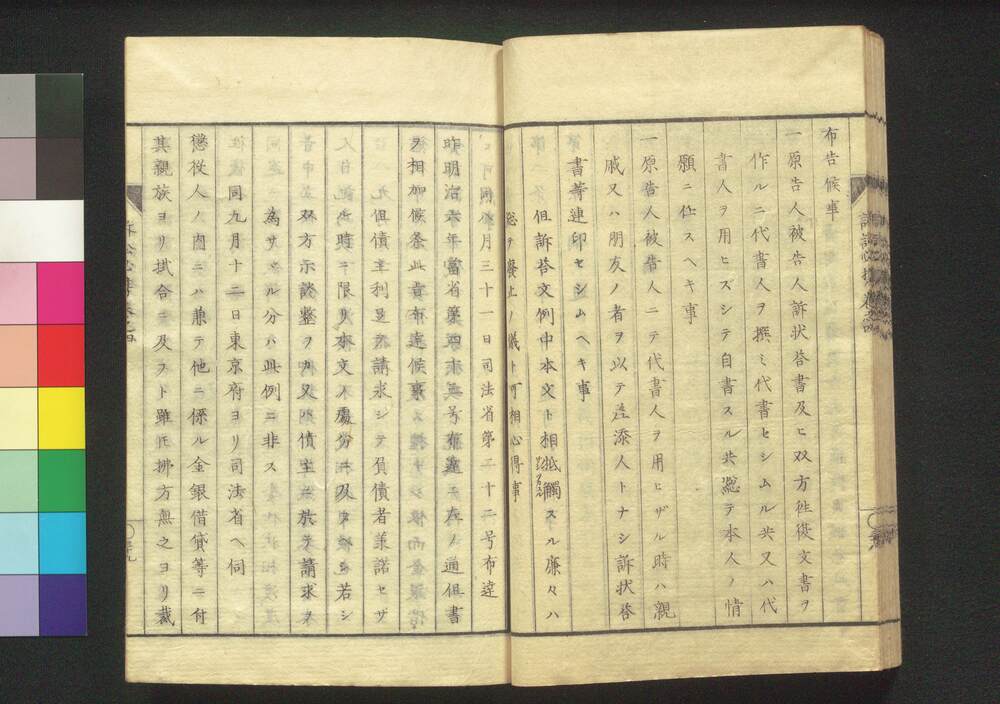 布告候事
一原告人被告人訴状答書及ヒ双方往復文書ヲ
作ルニ代書人ヲ撰ミ代書セシムル共又ハ代
書人ヲ用ヒズシテ自書スル共総テ本人ノ情
願ニ任スヘキ事
一原告人被告人ニテ代書人ヲ用ヒザル時ハ親
戚又ハ朋友ノ者ヲ以テ差添人トナシ訴状答
書等連印セシムヘキ事
但訴答文例中本文ト相抵觸スル廉々ハ
総テ廢止ノ儀ト可相心得事
同 月三十一日司法省第二十二号布達
昨明治六年當省第四 号布達 左ノ通但書
相加候条此 布達候事
但債主利足 請求シテ負債者兼諾セザ
ル時ニ限リ本文ノ處分ニ及 若シ
双方示談整 又 債主 於テ請求
為サヾル分ハ此例ニ非ス
同九月十二日東京府ヨリ司法省ヘ伺
懲役人ノ内ニハ兼テ他ニ係ル金銀借貸等ニ付
其親族ヨリ掛合ニ及フト雖 拂方無之ヨリ裁